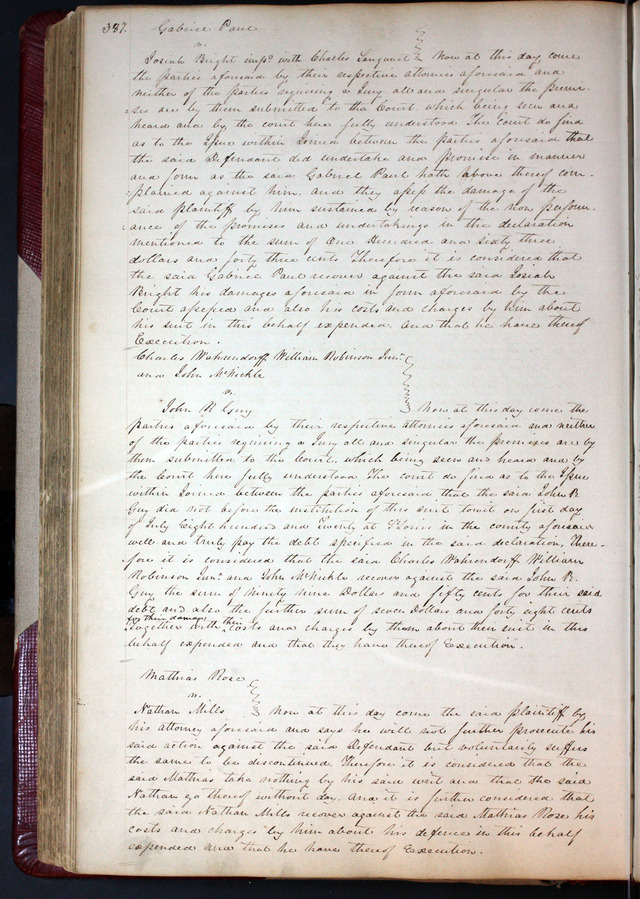 337. Gabriel Paul
vs.
Josiah Bright impd. with Charles Sanguinet Now at this day come
the parties aforesaid by their respective attornies aforesaid and
neither of the parties requiring a Jury all and singular the premi-
ses are by them submitted to the Court which being seen and
heard and by the court here fully understood The Court do find
as to the Issue within Joined between the parties aforesaid that
the said Defendant did undertake and promise in manner
and form as the said Gabriel Paul hath above thereof com-
plained against him. and they assess the damage of the
said plaintiff by him sustained by reason of the non perform-
ance of the promises and undertakings in the declaration
mentioned to the sum of One Hundred and Sixty three
dollars and forty three cents Therefore it is considered that
the said Gabriel Paul recover against the said Josiah
Bright his damages aforesaid in form aforesaid by the
Court assessed and also his costs and charges by him about
his suit in this behalf expended. And that he have thereof
Execution.
Charles Wahrendorff William Robinson Junr.
and John McNickle
vs.
John R Guy Now at this day come the
parties aforesaid by their respective attornies aforesaid and neither
of the parties requiring a Jury all and singular the premises are by
them submitted to the Court. which being seen and heard and by
the Court here fully understood The court do find as to the Issue
within Joined between the parties aforesaid that the said John R.
Guy did not before the institution of this suit towit on first day
of July Eight hundred and Twenty at St Louis in the county aforesaid
well and truly pay the debt specified in the said declaration, There-
fore it is considered that the said Charles Wahrendorff William
Robinson Junr. and John McNickle recover against the said John R.
Guy the sum of Ninety nine Dollars and fifty cents for their said
debt, and also the further sum of seven Dollars and forty eight cents
for their damages
together with their costs and charges by them about their suit in this
behalf expended and that they have thereof Execution.
Mathias Rose
vs.
Nathan Mills Now at this day come the said plaintiff by
his attorney aforesaid and says he will not further prosecute his
said action against the said Defendant but voluntarily suffers
the same to be discontinued. Therefore it is considered that the
said Mathias take nothing by his said writ and that the said
Nathan go thereof without day. And it is further considered that
the said Nathan Mills recover against the said Mathias Rose his
costs and charges by him about his defence in this behalf
expended and that he have thereof Execution.